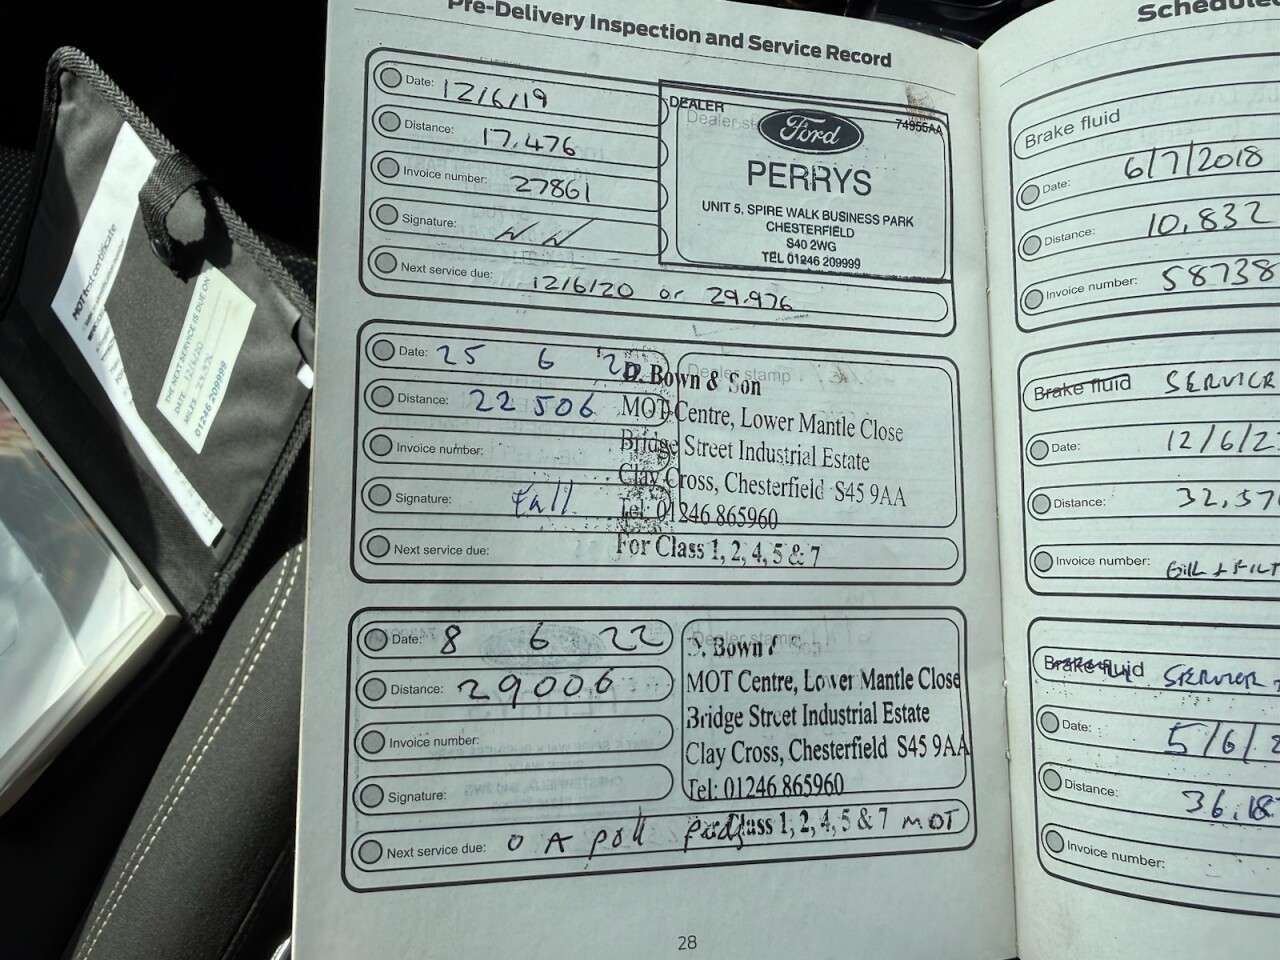 Pre-Delivery Inspection and Service Record
Date: 12/6/19
Distance: 17.476
Invoice number: 27861
Signature:
Next service due: 12/6/20 or 29.976
DEALER
Dealer stamp
74955AA
Ford
PERRYS
UNIT 5, SPIRE WALK BUSINESS PARK
CHESTERFIELD
S40 2WG
TEL 01246 209999
Date: 25 6
Distance: 22 506
Invoice number:
Signature:
Next service due:
Dealer stamp
D. Bown & Son
MOT Centre, Lower Mantle Close
Bridge Street Industrial Estate
Clay Cross, Chesterfield S45 9AA
Tel: 01246 865960
For Class 1, 2, 4, 5 & 7
Date: 8 6 22
Distance: 29006
Invoice number:
Signature:
Next service due: MOT
Dealer stamp
D. Bown &
MOT Centre, Lower Mantle Close
Bridge Street Industrial Estate
Clay Cross, Chesterfield S45 9AA
Tel: 01246 865960
Class 1, 2, 4, 5 & 7
28
Scheduled
Brake fluid
Date: 6/7/2018
Distance: 10,832
Invoice number: 58738
Brake fluid SERVICE
Date: 12/6/2
Distance: 32,37
Invoice number: OIL + FILT
Brake fluid SERVICE
Date: 5/6/2
Distance: 36,18
Invoice number:
MOT test certificate
THE NEXT SERVICE IS DUE ON
DATE 12/6/20
MILES
01246 209999